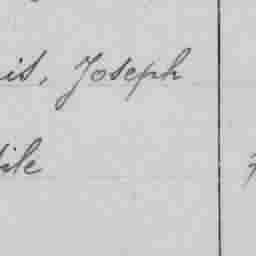 is, Joseph
ile